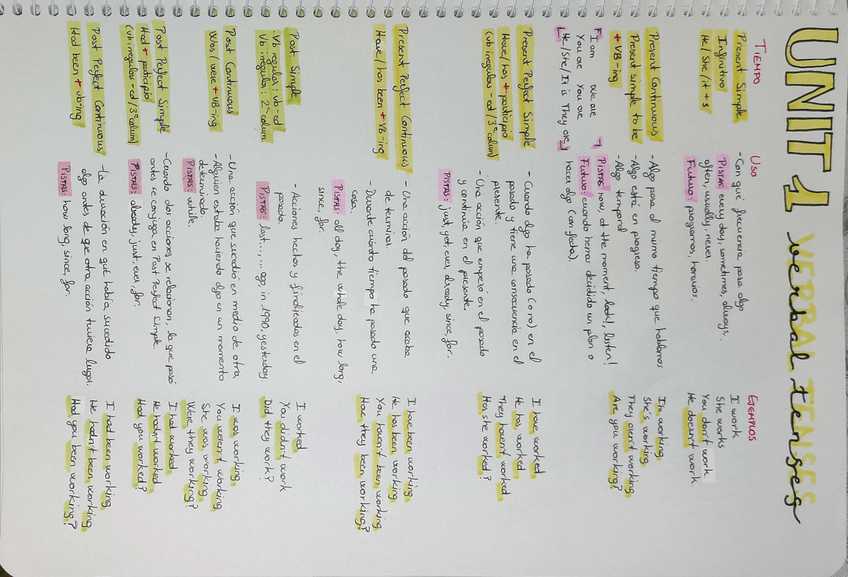 UNIT 1 verbal tenses
VERBAL TENSES
TIEMPO
USO
EJEMPLOS
Present Simple
Infinitivo
He / She / it + s
- Con qué frecuencia pasa algo
PISTAS: every day, sometimes, always,
often, usually, never.
FUTURO: programas, horarios.
I work
She works
You don't work
He doesn't work.
Present Continuous
Present simple to be
+ VB-ing
I am we are
You are You are
He/She/It is They are
- Algo pasa al mismo tiempo que hablamos
- Algo está en progreso.
- Algo temporal
PISTAS: now, at the moment, look!, listen!
FUTURO: cuando hemos decidido un plan o
hacer algo (con fecha).
I'm working.
She's working.
They aren't working.
Are you working?
Present Perfect Simple
Have/has + participio
(vb irregulars -ed/3ªcolum)
- Cuando algo ha pasado (o no) en el
pasado y tiene una consecuencia en el
presente.
- Una acción que empezó en el pasado
y continúa en el presente.
PISTAS: just, yet, ever, already, since, for.
I have worked.
He has worked.
They haven't worked.
Has she worked?
Present Perfect Continuous
Have / has been + VB-ing
- Una acción del pasado que acaba
de terminar.
- Durante cuánto tiempo ha pasado una
cosa.
PISTAS: all day, the whole day, how long,
since, for.
I have been working.
He has been working.
You haven't been working
Have they been working?
Past Simple
Vb regulars: vb-ed
Vb irregulars: 2ªcolum.
- Acciones hechas y finalizadas en el
pasado.
PISTAS: last..., ... ago, in 1990, yesterday
I worked
You didn't work
Did they work?
Past Continuous
Was / were + VB-ing
- Una acción que sucedió en medio de otra.
- Alguien estaba haciendo algo en un momento
determinado.
PISTAS: while.
I was working.
You weren't working
She was working.
Were they working?
Past Perfect Simple
Had + participio
(vb irregulars -ed/3ªcolum)
- Cuando dos acciones se relacionan, la que pasó
antes se conjuga en Past Perfect Simple.
PISTAS: already, just, ever, for.
I had worked
He hadn't worked.
Had you worked?
Past Perfect Continuous
Had been + vb-ing
- La duración en que había sucedido
algo antes de que otra acción tuviera lugar.
PISTAS: how long, since, for.
I had been working.
He hadn't been working
Had you been working?